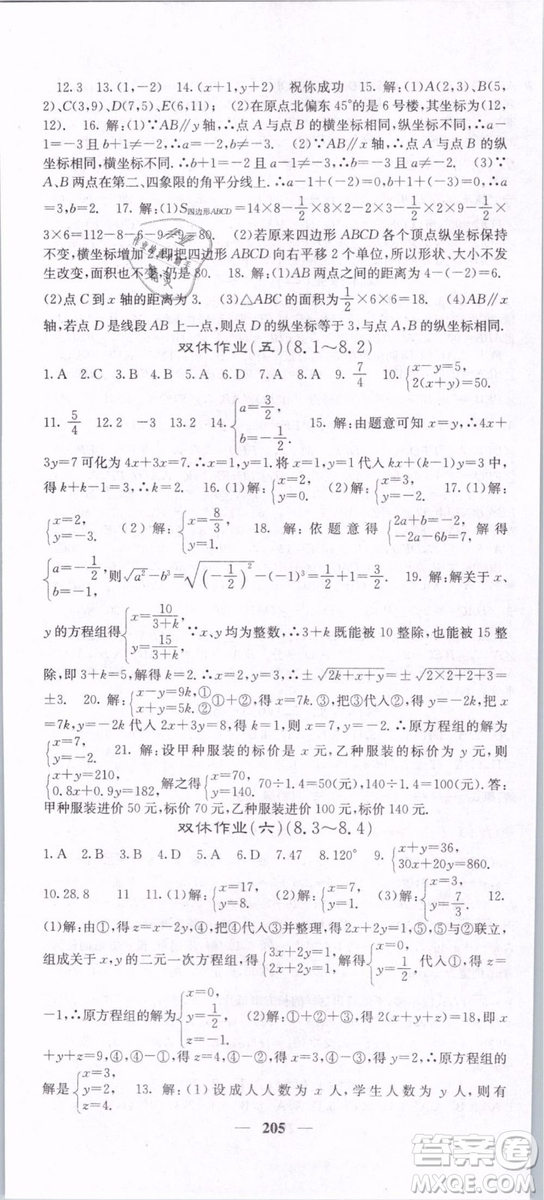 12.3 13.(1,-2) 14.(x+1,y+2) 祝你成功 15. 解:(1)A(2,3),B(5,
2),C(3,9),D(7,5),E(6,11); (2)在原点北偏东45°的是6号楼,其坐标为(12,
12). 16. 解:(1)∵AB∥y轴,∴点A与点B的横坐标相同,纵坐标不同,∴a-
1=-3且b+1≠-2.∴a=-2,b≠-3. (2)∵AB∥x轴,∴点A与点B的纵
坐标相同,横坐标不同.∴b+1=-2且a-1≠-3.∴a≠-2,b=-3. (3)∵
A、B两点在第二、四象限的角平分线上.∴a-1+(-2)=0,b+1+(-3)=0.∴
a=3,b=2. 17. 解:(1)S四边形ABCD=14×8-1/2×8×2-1/2×9×2-1/2
×3×6=112-8-6-9-9=80. (2)若原来四边形ABCD各个顶点纵坐标保持
不变,横坐标增加2,即把四边形ABCD向右平移2个单位,所以形状、大小不发
生改变,面积不变,仍是80. 18. 解:(1)A,B两点之间的距离为4-(-2)=6.
(2)点C到x轴的距离为3. (3)△ABC的面积为1/2×6×6=18. (4)不一
定,若点D是线段AB上的点,则点D的纵坐标等于3,与点A、B的纵坐标相同.
双休作业(五)(8.1~8.2)
1.A 2.C 3.A 4.D 5.B 6.A 7.A 8.x=5 9.7/4 10.{x-y=5, 2(x+y)=50.
11.5/4 12.2 -3 13.2 14.{a=3/2, b=-1/2 15. 解:由题意可知x=y,∴4x+
3y=7可化为4x+3x=7,∴x=1,y=1.将x=1,y=1代入kx+(k-1)y=3中,
得k+k-1=3,∴k=2. 16.(1)解:{x=2, y=0. (2)解:{x=2, y=3. 17.(1)解:
{x=2, y=-3. (2)解:{x=8/3, y=1. 18. 解:依题意得{2a+b=-2, -2a-6b=7,解得
{a=-1/2, b=-1, 则√(a²-b³)=√((-1/2)²-(-1)³)=√(1/2+1=1/2. 19. 解:解关于x、
y的方程组得{x=10/(3+k), y=15/(3+k) ∵x、y均为整数,∴3+k既能被10整除,也能被15整
除,即3+k=5.解得k=2,∴x=2,y=3.∴±√(2k+x+y)=±√(2×2+2+3)=
±3. 20. 解:{x-y=9k,① x+y=5k.② ①+②得2x=14k,∴x=7k.把x=7k代入②,得y=-2k.把x=
7k,y=-2k代入2x-3y+10=30,得14k+6k+10=30,∴k=1,∴原方程组的解为
{x=7, y=-2. 21. 解:设甲种服装的标价是x元,乙种服装的标价为y元,则
{x+y=210, 0.8x+0.9y=182, 解之得{x=70, y=140. ∴70÷1.4=50(元),140÷1.4=100(元).答:
甲种服装进价50元,标价70元,乙种服装进价100元,标价140元.
双休作业(六)(8.3~8.4)
1.A 2.D 3.B 4.D 5.A 6.D 7.47 8.120° 9.{x+y=36, 30x+20y=860.
10.28.8 11 11.(1)解:{x=17, y=8. (2)解:{x=60, y=40. (3)解:{x=1, y=7/3. 12.
(1)解:由①,得z=y-x④,把④代入③并整理,得3x+2y=1⑤,⑤与②联立,
组成关于x,y的二元一次方程组,得{3x+2y=1, 2x+2y=1, 解得{x=0, y=1/2, 代入③得z=
-1,∴原方程组的解为{x=0, y=1/2, z=-1. (2)解:①+②+③,得2(x+y+z)=18,即x
+y+z=9,④,④-①得z=4,④-②得x=3,④-③得y=2,∴原方程组的
解是{x=3, y=2, z=4. 13. 解:(1)设成人人数为x人,学生人数为y人,则有
205
答案圈
MXQE.COM